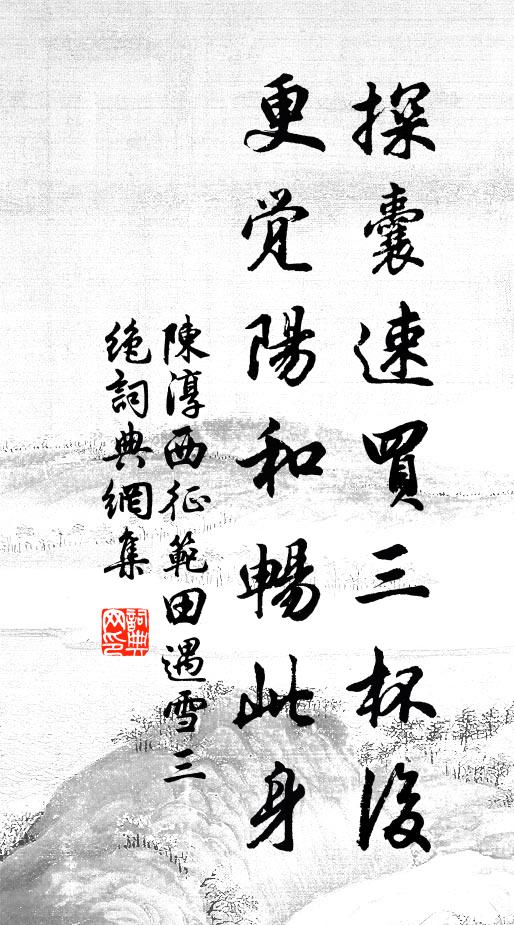 探囊速買三杯後
更覺陽和暢此身
陳淳西征範田遇雪三
絶詞典網集
詞典